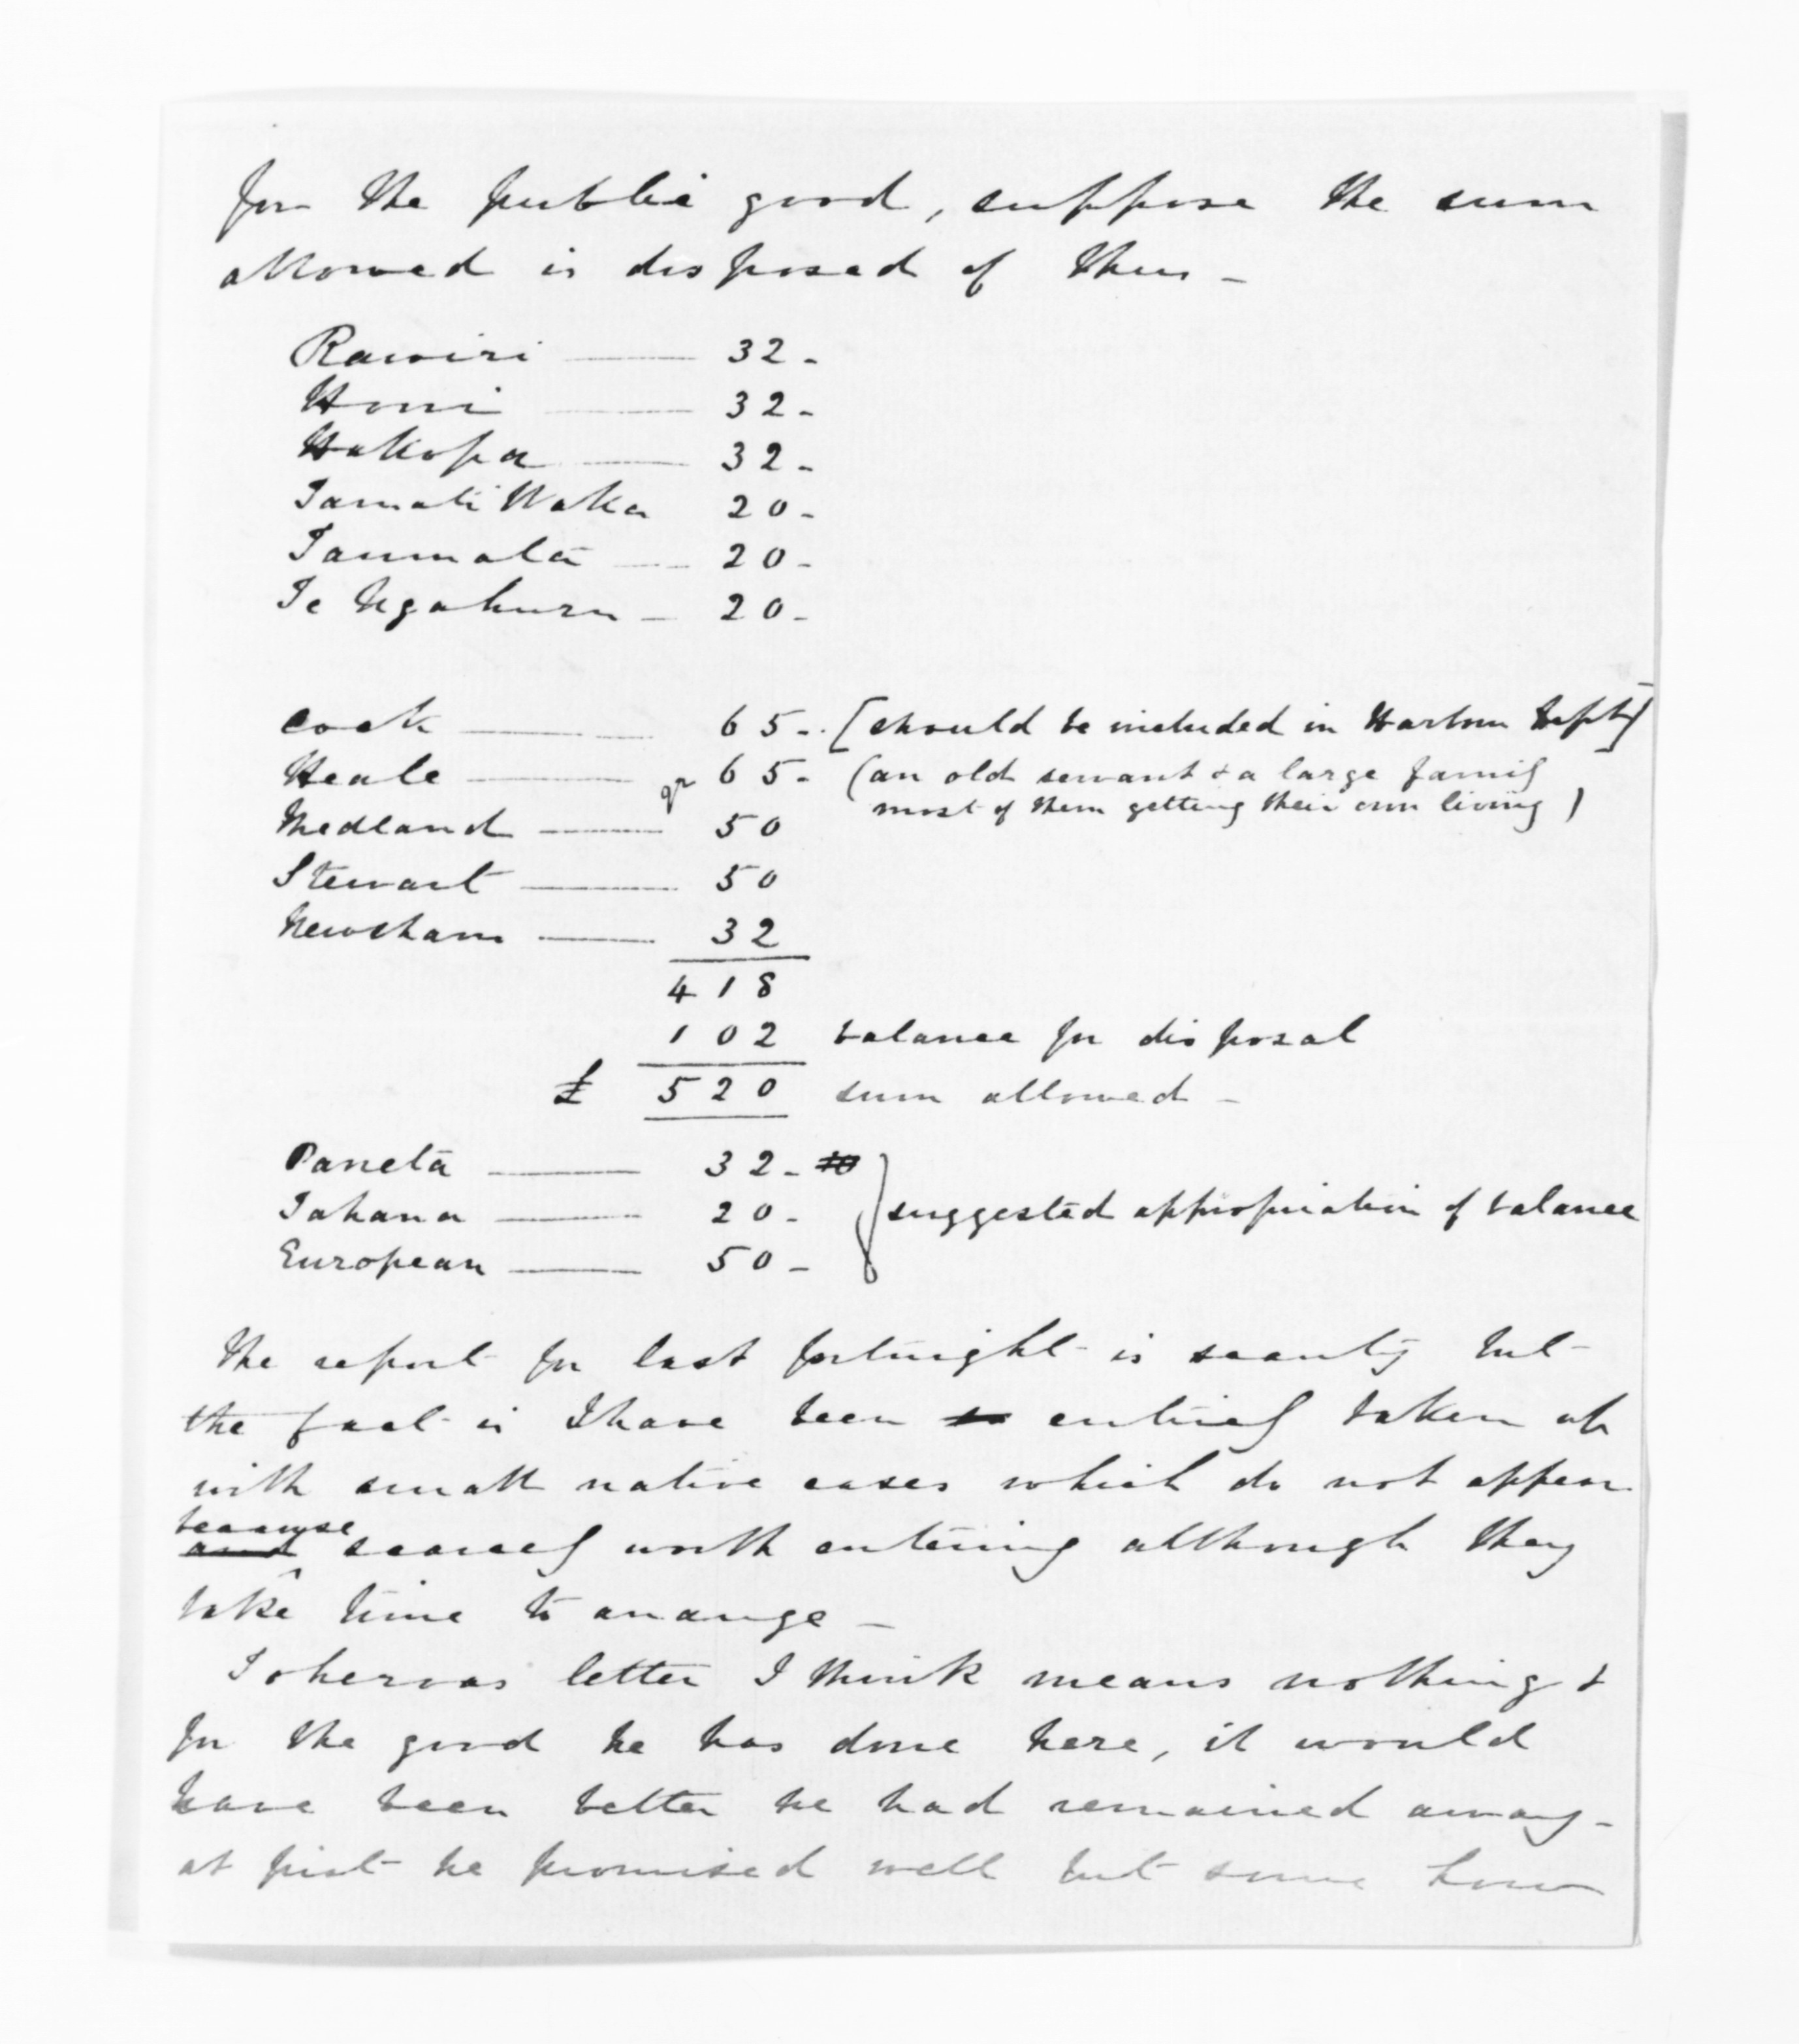 for the public good, suppose the sum
allowed is disposed of thus -
Rawiri — 32 -
Honi — 32 -
Hakopa — 32 -
Tamati Waka 20 -
Taumata — 20 -
Te Ngahuru — 20 -
Cook — 65 - [should be included in Harbour Dept]
Heale — 65 - (an old servant & a large family
most of them getting their own living)
Medland — 50
Stewart — 50
Newsham — 32
418
102 balance for disposal
£ 520 sum allowed -
Paneta — 32 -
Tahana — 20 - suggested appropriation of balance
European — 50 -
The report for last fortnight is scanty but
the fact is I have been so entirely taken up
with small native cases which do not appear
because
and scarcely worth entering although they
take time to arrange -
Tohervas letter I think means nothing &
for the good he has done here, it would
have been better he had remained away -
at first he promised well but some how